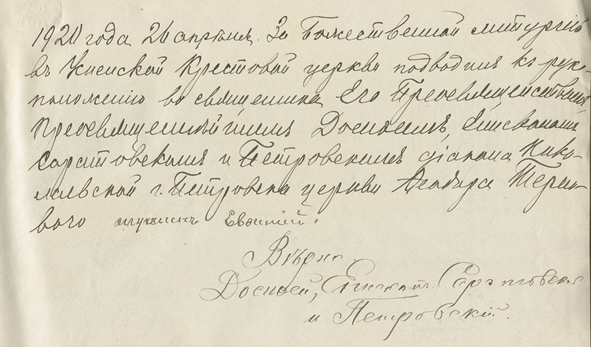 1920 года 26 апрѣля. За Божественной литургіей
въ Кіевской Крестовой церкви подводилъ къ руко-
положенію во священника Его Преосвященствомъ
Преосвященнѣйшимъ Досиѳеемъ, Епископомъ
Саратовскимъ и Петровскимъ діакона Нико-
лаевской г. Петровска церкви Ѳеодора
Евѳимій.
Вѣрно
Досиѳей, Епископъ Саратовскій
и Петровскій.